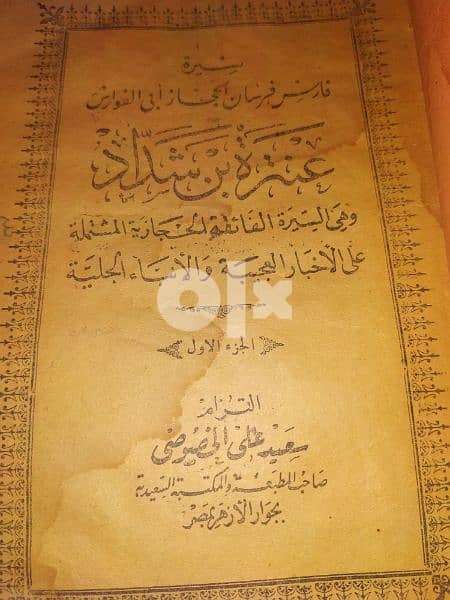 سيرة
فارس فرسان الحجاز أبى الفوارس
عنترة بن شداد
وهى السيرة الفائقة الحجازية المشتملة
على الأخبار العجيبة والأنباء الجلية
الجزء الاول
التزام
سعيد على الخصوصى
صاحب المطبعة والمكتبة السعيدية
بجوار الأزهر بمصر
olx